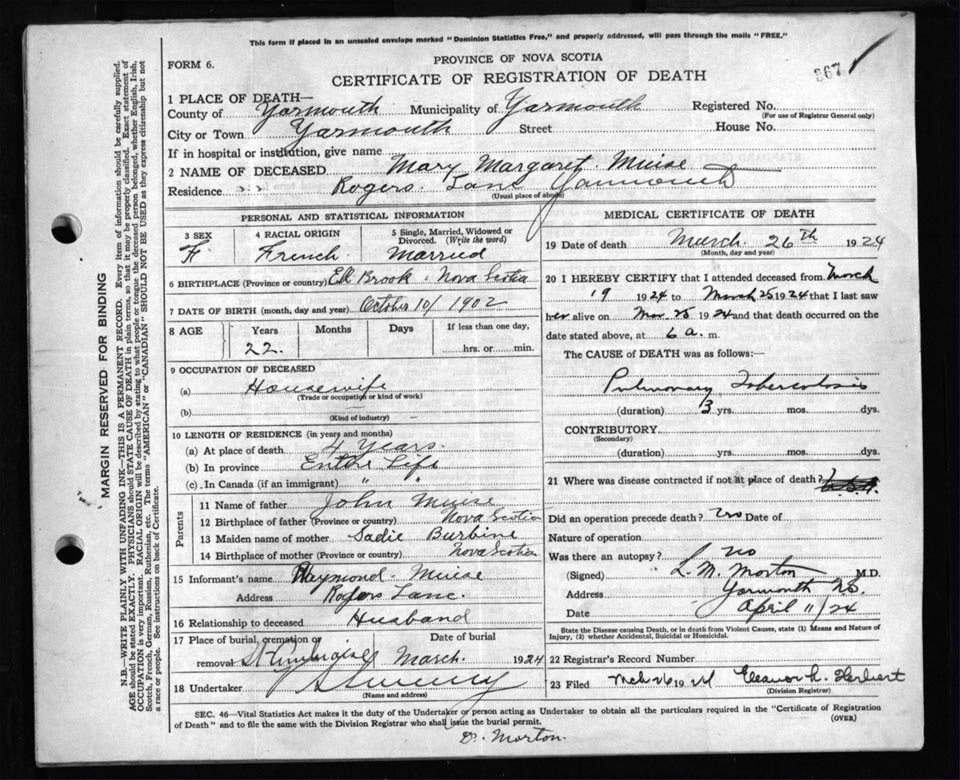 This form if placed in an unsealed envelope marked "Dominion Statistics Free," and properly addressed, will pass through the mails "FREE."
FORM 6.
PROVINCE OF NOVA SCOTIA
CERTIFICATE OF REGISTRATION OF DEATH
867
1 PLACE OF DEATH—
County of Yarmouth Municipality of Yarmouth Registered No.
(For use of Registrar General only)
City or Town Yarmouth Street House No.
If in hospital or institution, give name
2 NAME OF DECEASED Mary Margaret Muise
Residence Rogers Lane Yarmouth
(Usual place of abode)
PERSONAL AND STATISTICAL INFORMATION
3 SEX 4 RACIAL ORIGIN 5 Single, Married, Widowed or Divorced. (Write the word)
F French Married
6 BIRTHPLACE (Province or country) Ell Brook Nova Scotia
7 DATE OF BIRTH (month, day and year) October 10/1902
8 AGE Years Months Days If less than one day,
22. hrs. or min.
9 OCCUPATION OF DECEASED
(a) Housewife
(Trade or occupation or kind of work)
(b)
(Kind of industry)
10 LENGTH OF RESIDENCE (in years and months)
(a) At place of death 4 years.
(b) In province Entire Life
(c) In Canada (if an immigrant) " "
Parents
11 Name of father John Muise
12 Birthplace of father (Province or country) Nova Scotia
13 Maiden name of mother Sadie Burbine
14 Birthplace of mother (Province or country) Nova Scotia
15 Informant's name Raymond Muise
Address Rogers Lane.
16 Relationship to deceased Husband
17 Place of burial, cremation or Date of burial
removal March. 1924
18 Undertaker Sweeny
(Name and address)
MEDICAL CERTIFICATE OF DEATH
19 Date of death March 26th 1924
(Month, day and year)
20 I HEREBY CERTIFY that I attended deceased from March
19 1924 to March 25 1924 that I last saw
her alive on Mar 25 1924 and that death occurred on
date stated above, at 6 a. m.
The CAUSE OF DEATH was as follows:
Pulmonary Tuberculosis
(duration) 3 yrs. mos. dys.
CONTRIBUTORY
(Secondary)
(duration) yrs. mos. dys.
21 Where was disease contracted if not at place of death?
Did an operation precede death? no Date of
Nature of operation
Was there an autopsy? no
(Signed) L. M. Morton M.D.
Address Yarmouth NS
Date April 11/24
State the Disease causing Death, or in death from Violent Causes, state (1) Means and Nature of Injury, (2) whether Accidental, Suicidal or Homicidal.
22 Registrar's Record Number
23 Filed Mch 26 1924 Eleanor L. Herbert
(Division Registrar)
SEC. 46—Vital Statistics Act makes it the duty of the Undertaker or person acting as Undertaker to obtain all the particulars required in the "Certificate of Registration
of Death" and to file the same with the Division Registrar who shall issue the burial permit.
(OVER)
Dr. Morton.
MARGIN RESERVED FOR BINDING
N.B.—WRITE PLAINLY WITH UNFADING INK—THIS IS A PERMANENT RECORD. Every item of information should be carefully supplied.
AGE should be stated EXACTLY. PHYSICIANS should STATE CAUSE OF DEATH in plain terms, so that it may be properly classified. Exact statement of
OCCUPATION is very important. RACIAL ORIGIN will be described by stating to what people or tongue the deceased person belonged, whether English, Irish,
Scotch, French, German, Russian, Ruthenian, etc. The terms "AMERICAN" or "CANADIAN" SHOULD NOT BE USED as they express citizenship but not
a race or people. See instructions on back of Certificate.